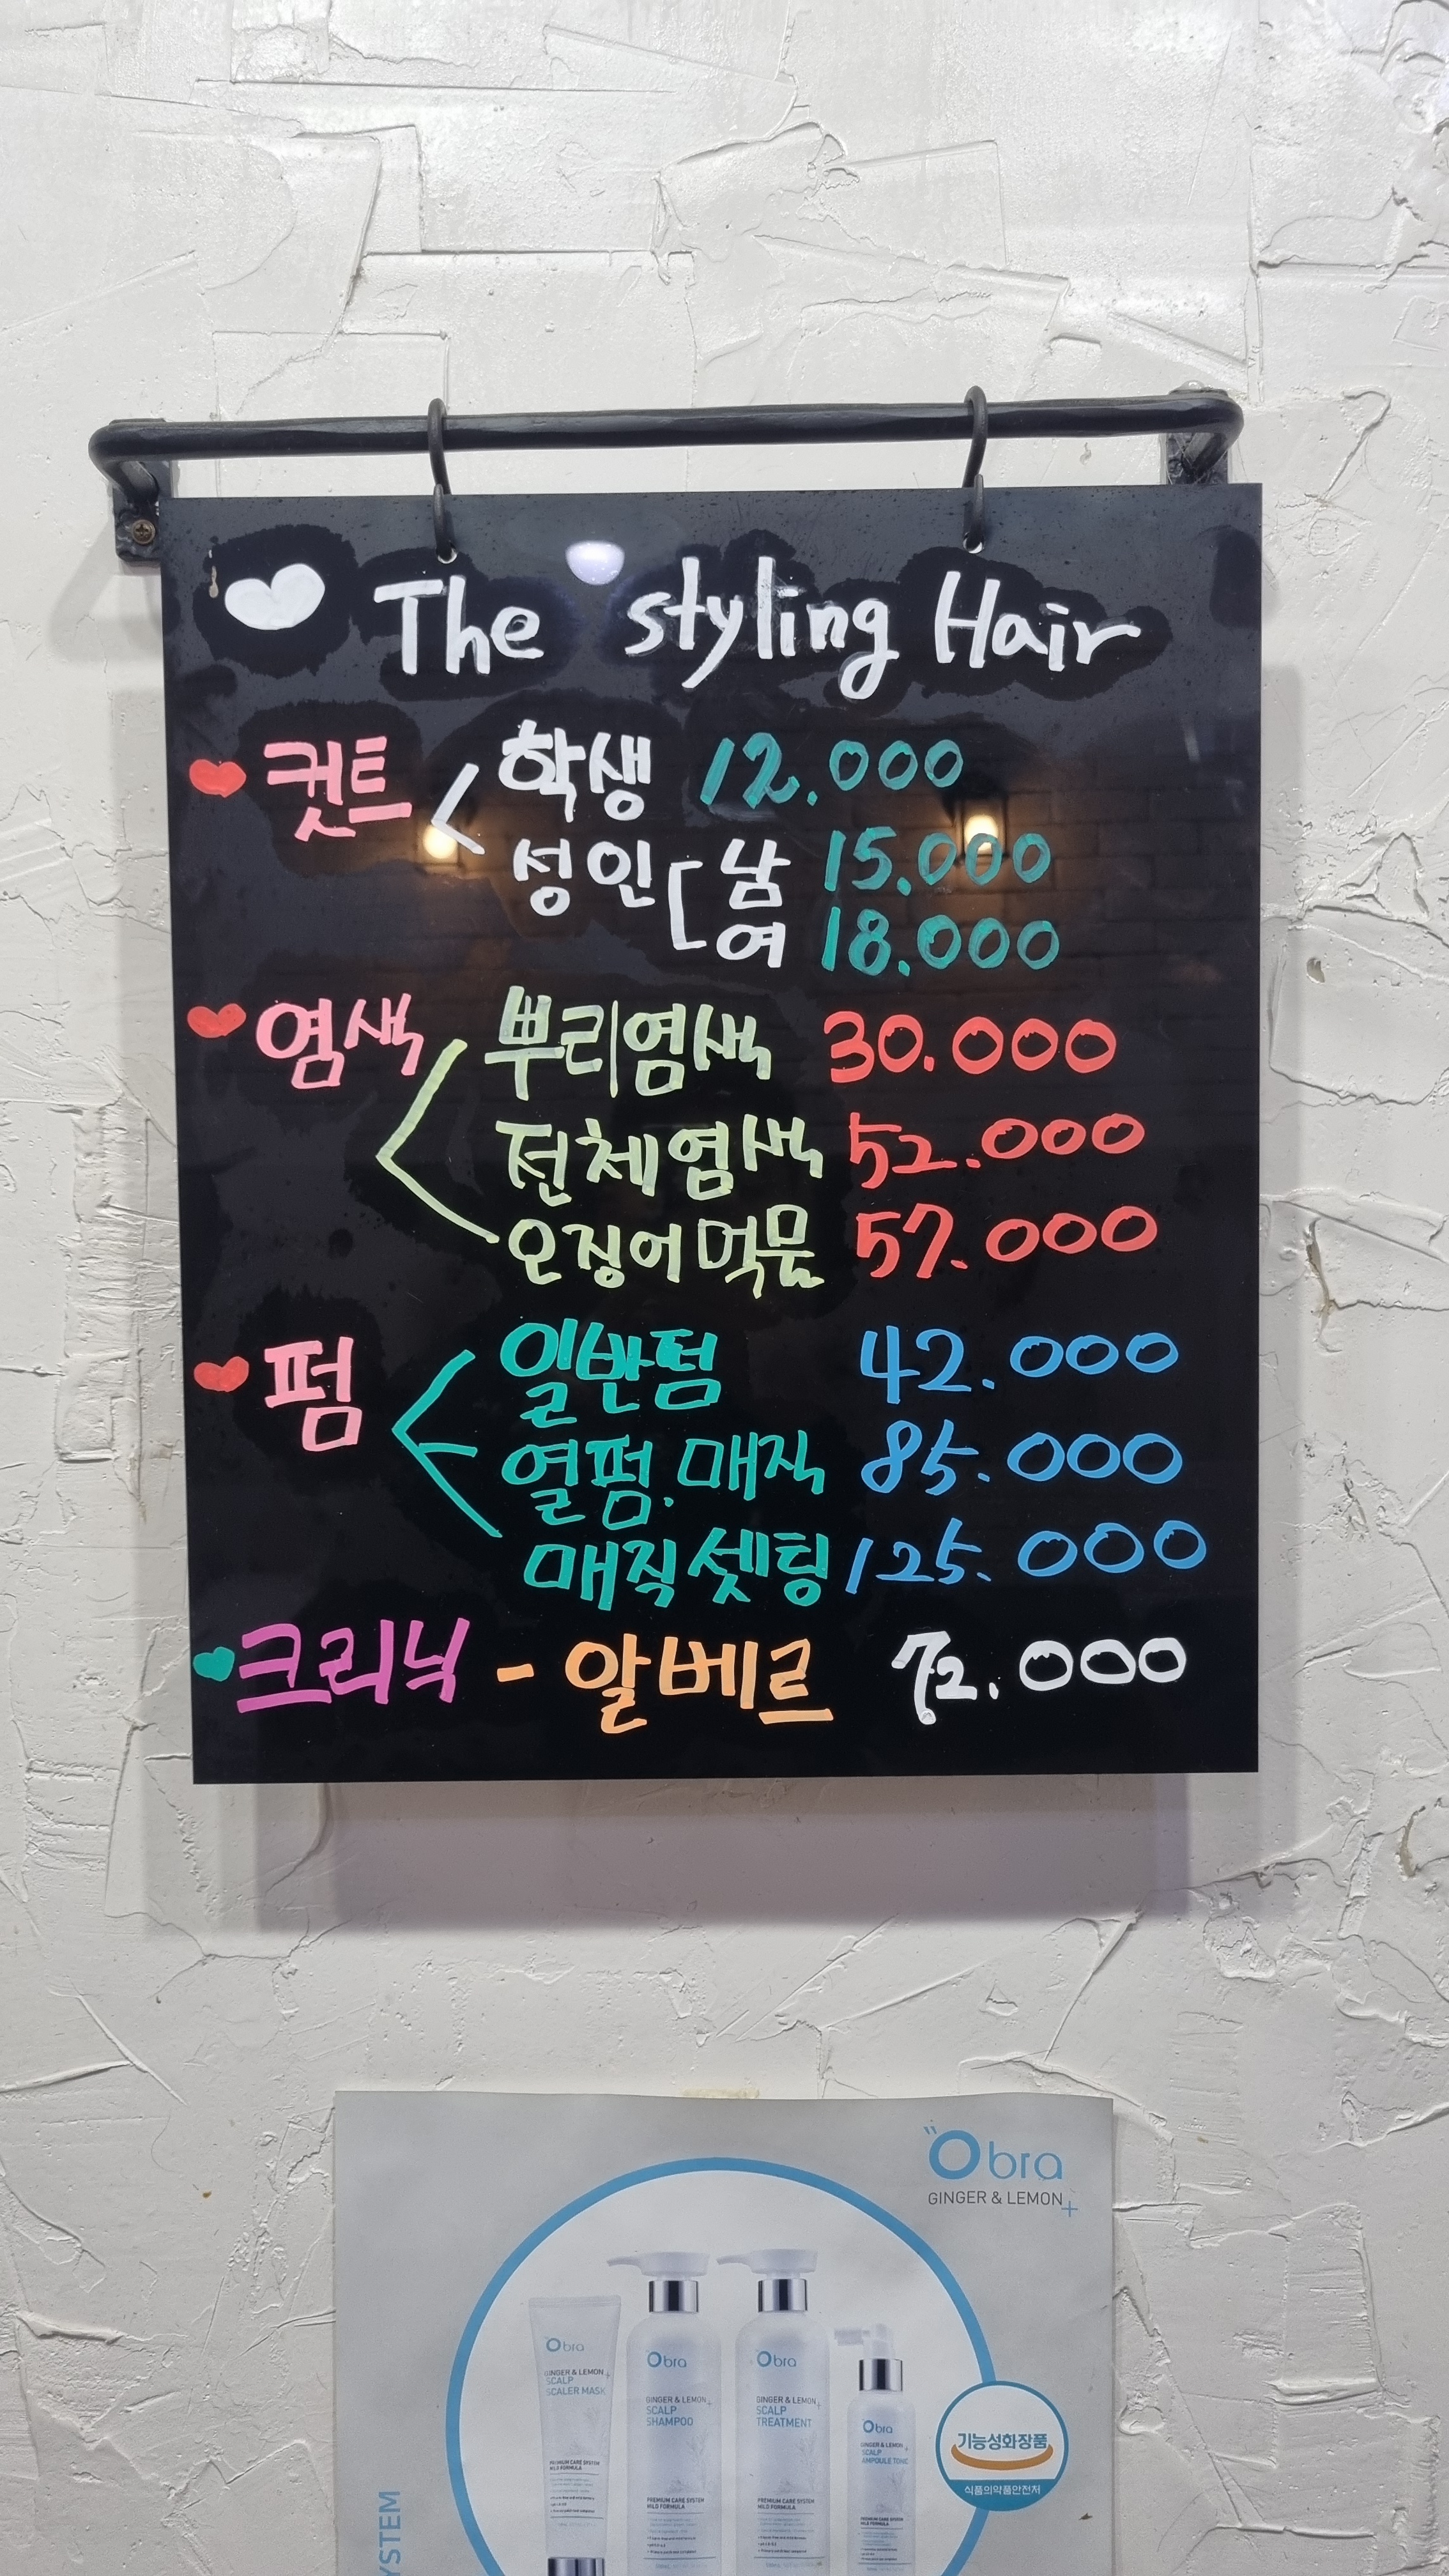 The styling Hair
컷트 학생 12.000
성인 남 15.000
여 18.000
염색 뿌리염색 30.000
전체염색 52.000
오징어먹물 57.000
펌 일반펌 42.000
열펌.매직 85.000
매직셋팅 125.000
크리닉 - 알베르 72.000
Obra
GINGER & LEMON+
Obra
GINGER & LEMON+
SCALP
SCALER MASK
PREMIUM CARE SYSTEM
MILD FORMULA
Obra
GINGER & LEMON+
SCALP
SHAMPOO
PREMIUM CARE SYSTEM
MILD FORMULA
Obra
GINGER & LEMON+
SCALP
TREATMENT
PREMIUM CARE SYSTEM
MILD FORMULA
Obra
GINGER & LEMON+
SCALP
AMPOULE TONIC
PREMIUM CARE SYSTEM
MILD FORMULA
기능성화장품
식품의약품안전처
YSTEM